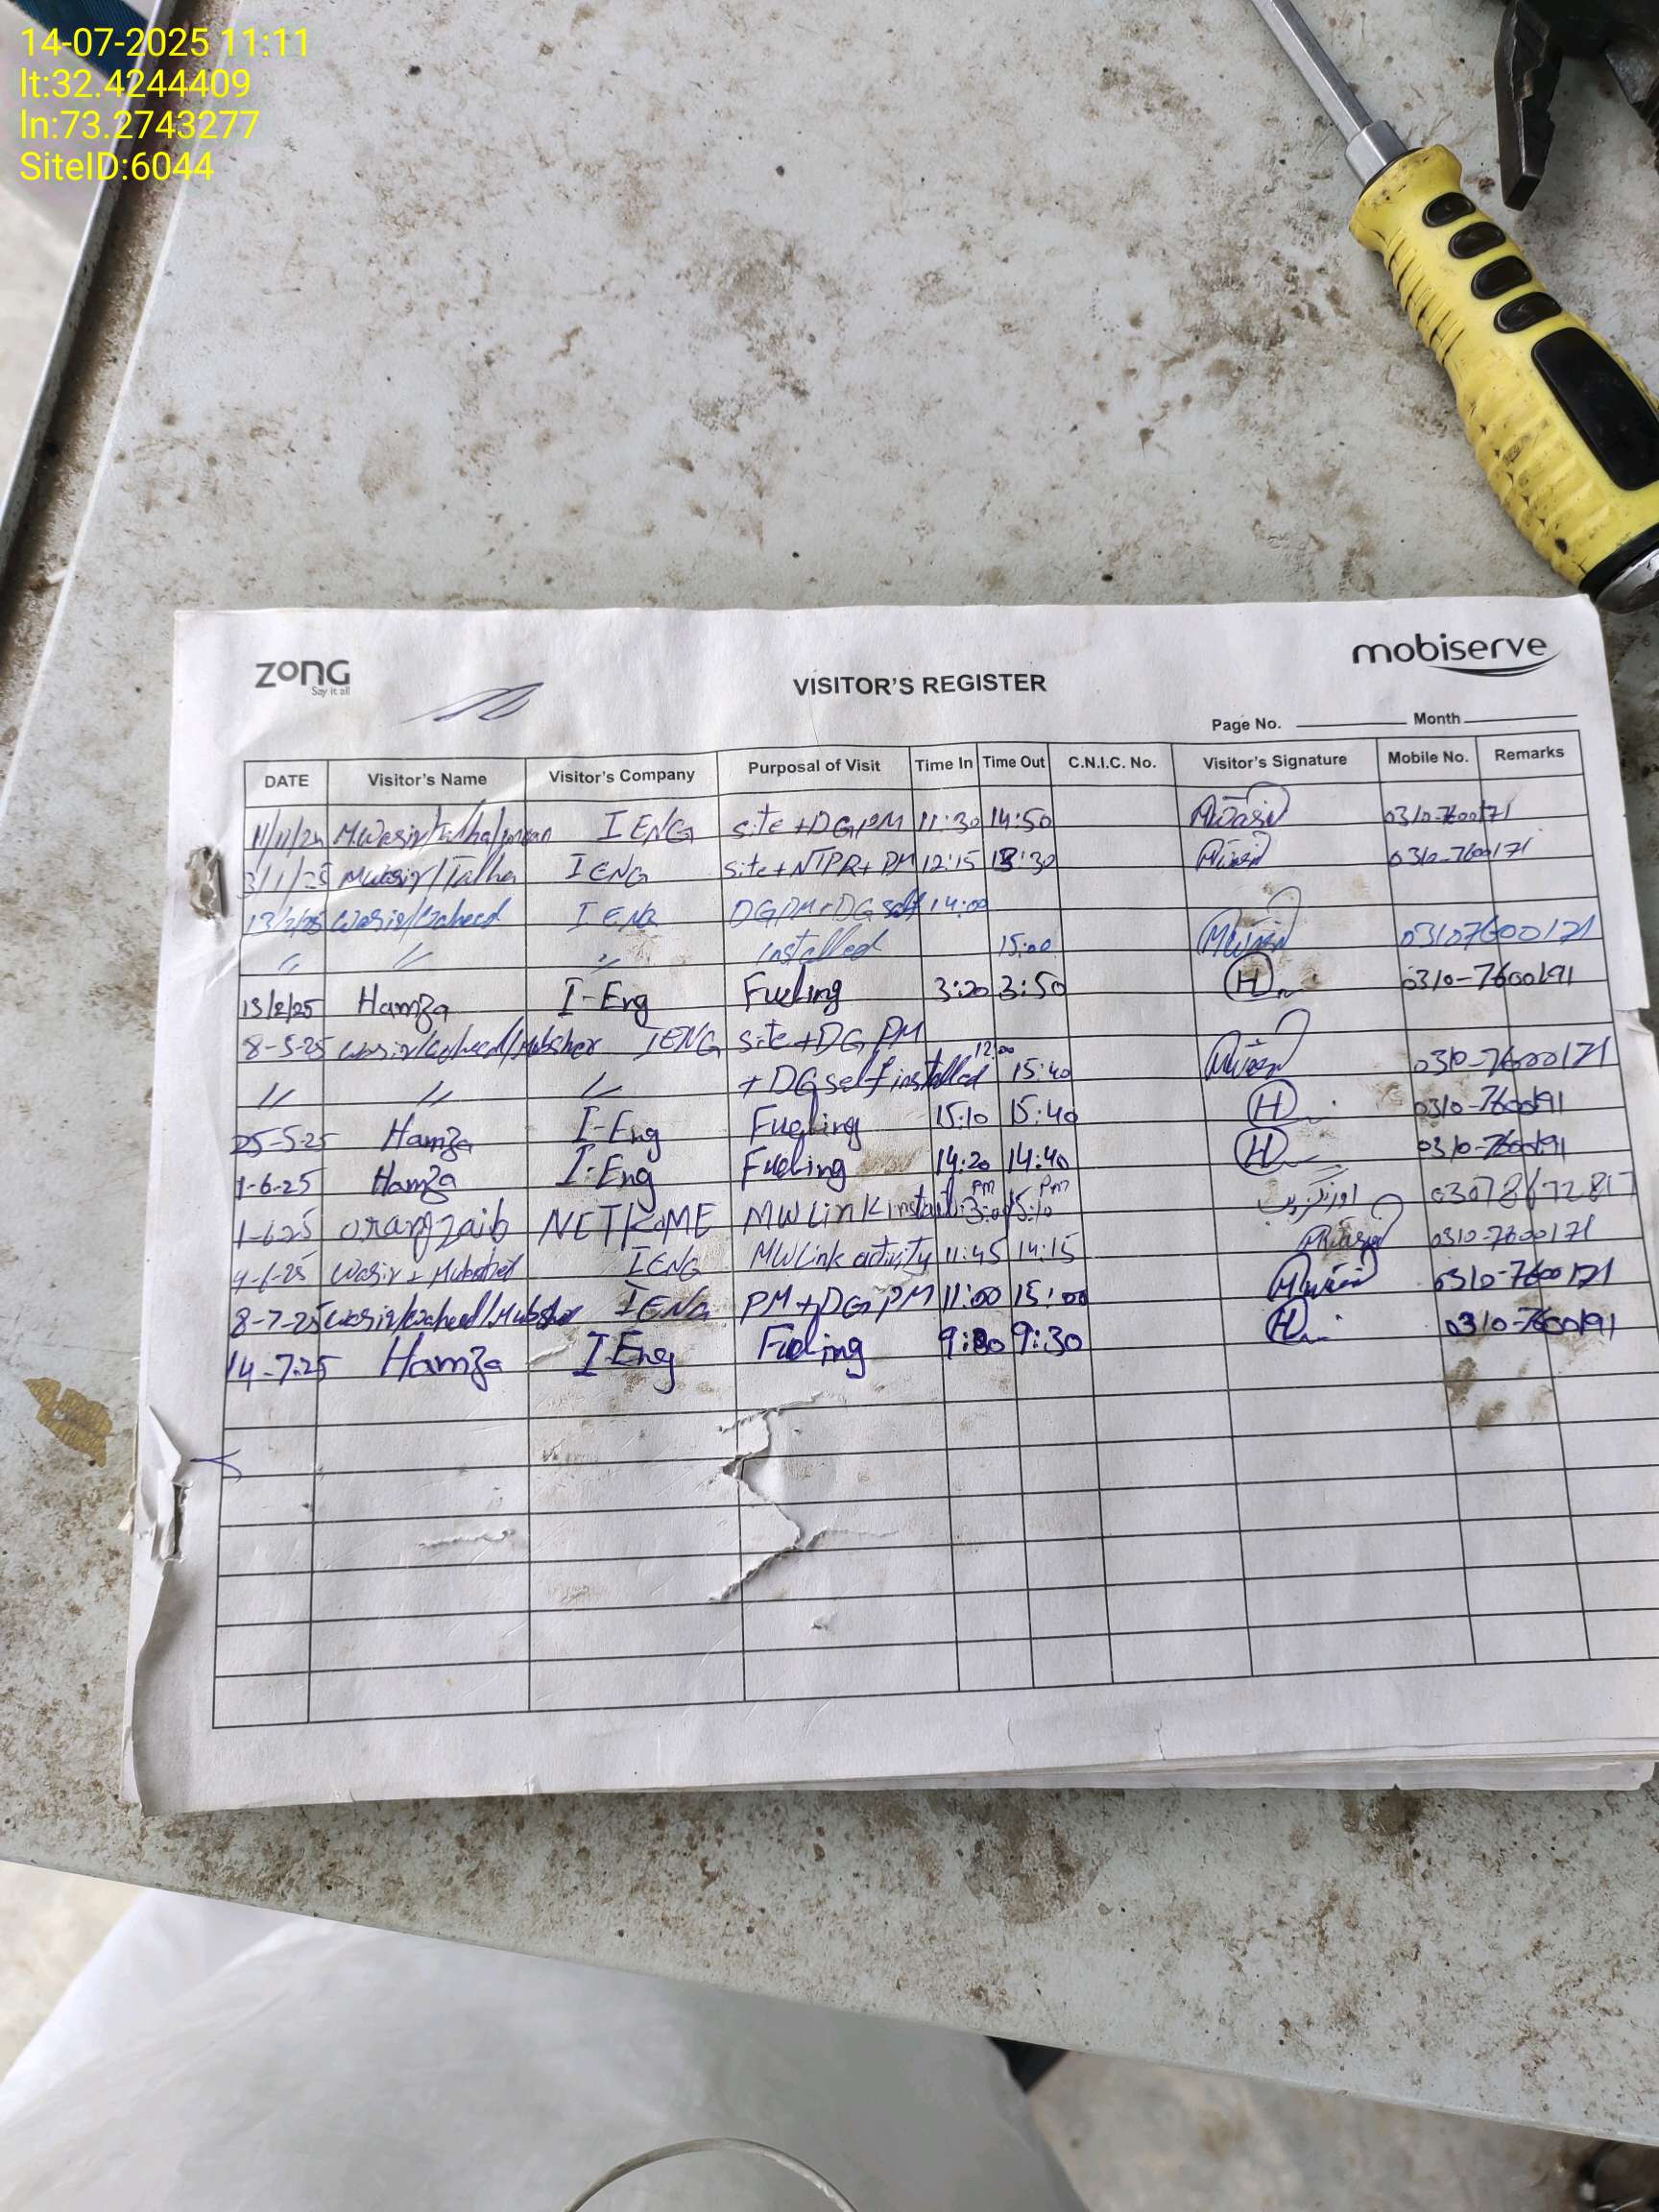 14-07-2025 11:11
lt:32.4244409
ln:73.2743277
SiteID:6044
zong
Say it all
mobiserve
VISITOR'S REGISTER
Page No. Month
DATE Visitor's Name Visitor's Company Purposal of Visit Time In Time Out C.N.I.C. No. Visitor's Signature Mobile No. Remarks
11/11/24 M.Wasir/Talha/ I ENG site+DGPM 11:30 14:50 0310-7600171
3/1/25 MWasir/Talha I ENG site+NTPR+PM 12:15 0310-7600171
13/2/25 Wasir/Waheed I ENG DGPM+DG self 14:00
" " " installed 15:00 03107600171
13/2/25 Hamza I-Eng Fueling 3:20 3:50 H 0310-7600191
8-5-25 Wasir/Waheed/Mubsher IENG site+DG PM
" " " +DG self installed 12:00 15:40 0310-7600171
25-5-25 Hamza I-Eng Fueling 15:10 15:40 H 0310-7600191
1-6-25 Hamza I-Eng Fueling 14:20 14:40 H 0310-7600191
1-6-25 orangzaib MW Link PM PM اورنگزیب
Wasir + IENG MW Link activity 11:45 14:15 0310-7600171
8-7-25 Wasir/Waheed/Mubsher IENG PM+DG PM 11:00 15:00 0310-7600171
14-7-25 Hamza I-Eng Fueling 9:30 H 0310-7600191